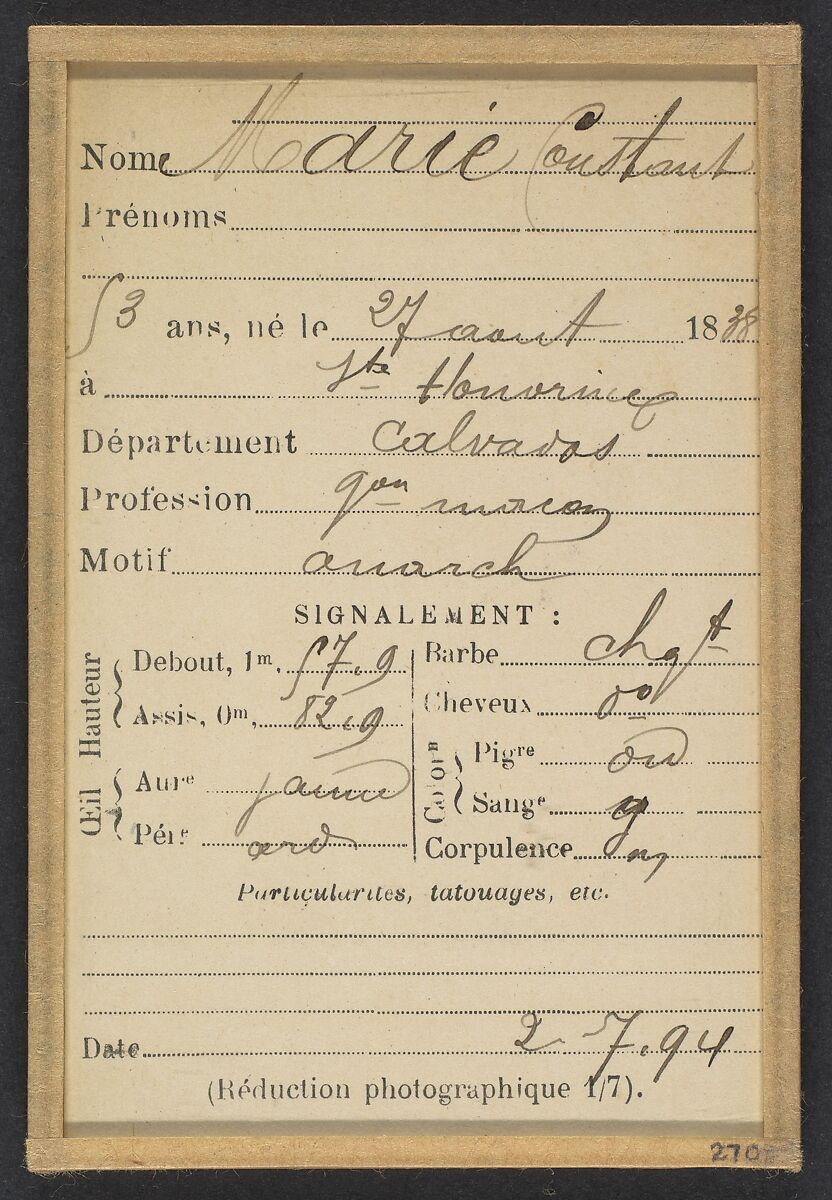 Nom Marie Constant
Prénoms
53 ans, né le 27 aout 1838
à Ste Honorine
Département Calvados
Profession gon maçon
Motif anarch
SIGNALEMENT :
Hauteur
Debout, 1m, 57.9
Assis, 0m, 82.9
Œil
Aure jaune
Pére
Barbe chgt
Cheveux do
Coloron
Pigre
Sange g
Corpulence m
Particularités, tatouages, etc.
Date 2.7.94
(Réduction photographique 1/7).